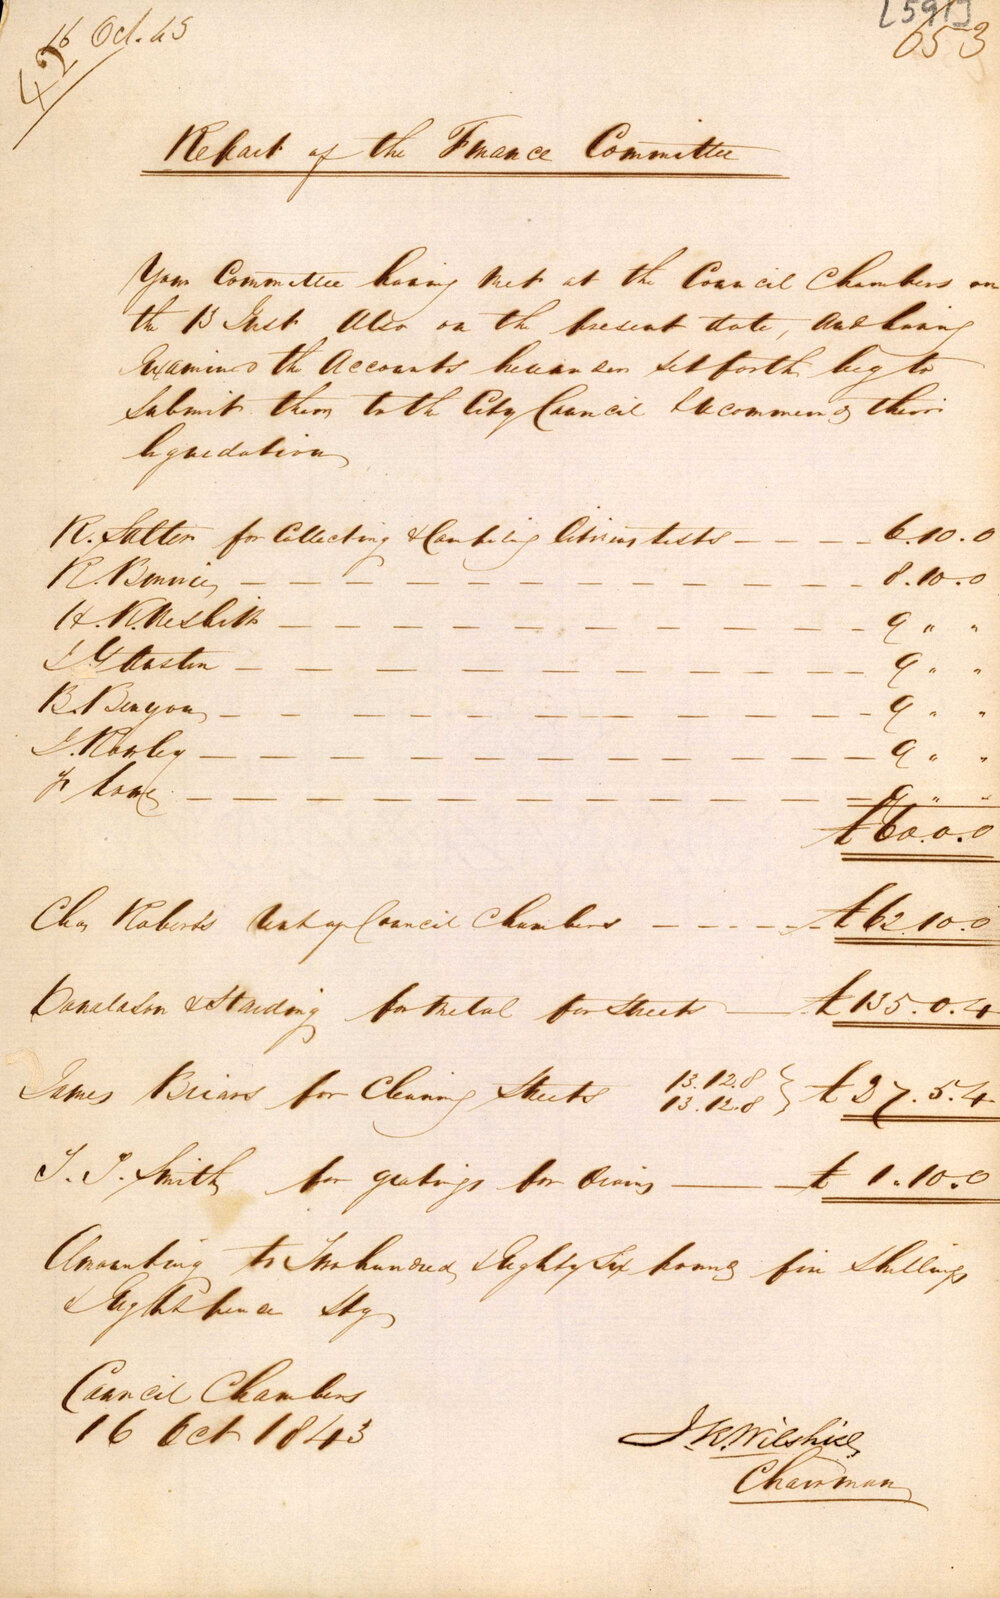 16 Oct. 43
42
[591]
653
Report of the Finance Committee
Your Committee having met at the Council Chambers on
the 13 Inst also on the present date, and having
Examined the Accounts hereunder set forth beg to
Submit them to the City Council & recommend their
liquidation
R. Salter for Collecting & Compiling Citizens lists - - - - 6.10.0
R. Bonnie - - - 8.10.0
H. K. Nesbitt - - - 9 " "
J G Austin - - - 9 " "
B. Benyon - - - 9 " "
J. Rowley - - - 9 " "
F Lowe - - - 9 " "
£60.0.0
Chas Roberts rent of Council Chambers - - - - - £62.10.0
Donaldson & Standing for Metal for Streets — £135.0.4
James Briars for Cleaning Streets 13.12.8 } £27.5.4
13.12.8
T. P. Smith for gratings for Drains — £1.10.0
Amounting to Two hundred & Eighty Six pounds five Shillings
& Eight pence Stg
Council Chambers
16 Oct 1843
J. R. Wilshire
Chairman